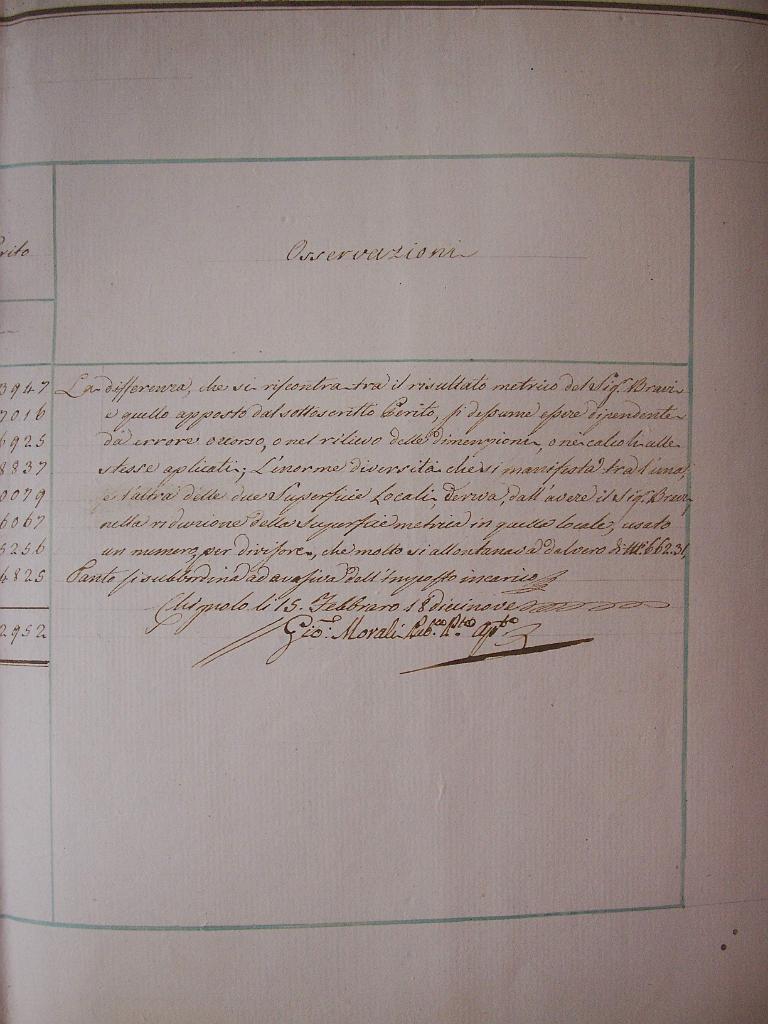 rito
Osservazioni
3947
7016
6925
8837
0079
6067
5256
4825
2952
La differenza, che si riscontra tra il risultato metrico del Sig.r Bravi
e quello apposto dal sottoscritto Perito, si desume essere dipendente
da errore occorso, o nel rilievo delle dimenzioni, o ne calcoli alle
stesse aplicati; L'inorme diversità che si manifesta tra l'una,
e l'altra delle due Superficie Locali, deriva, dall'avere il Sig.r Bravi,
nella riduzione della Superficie metrica in quella locale, usato
un numero per divisore, che molto si allontana dal vero di 662.31,
Tanto si subbordina ad evasiva dell'imposto incarico
Chignolo li 15. Febbraro 18dicinove
Gio: Morali Pub.co P.to Ap.to